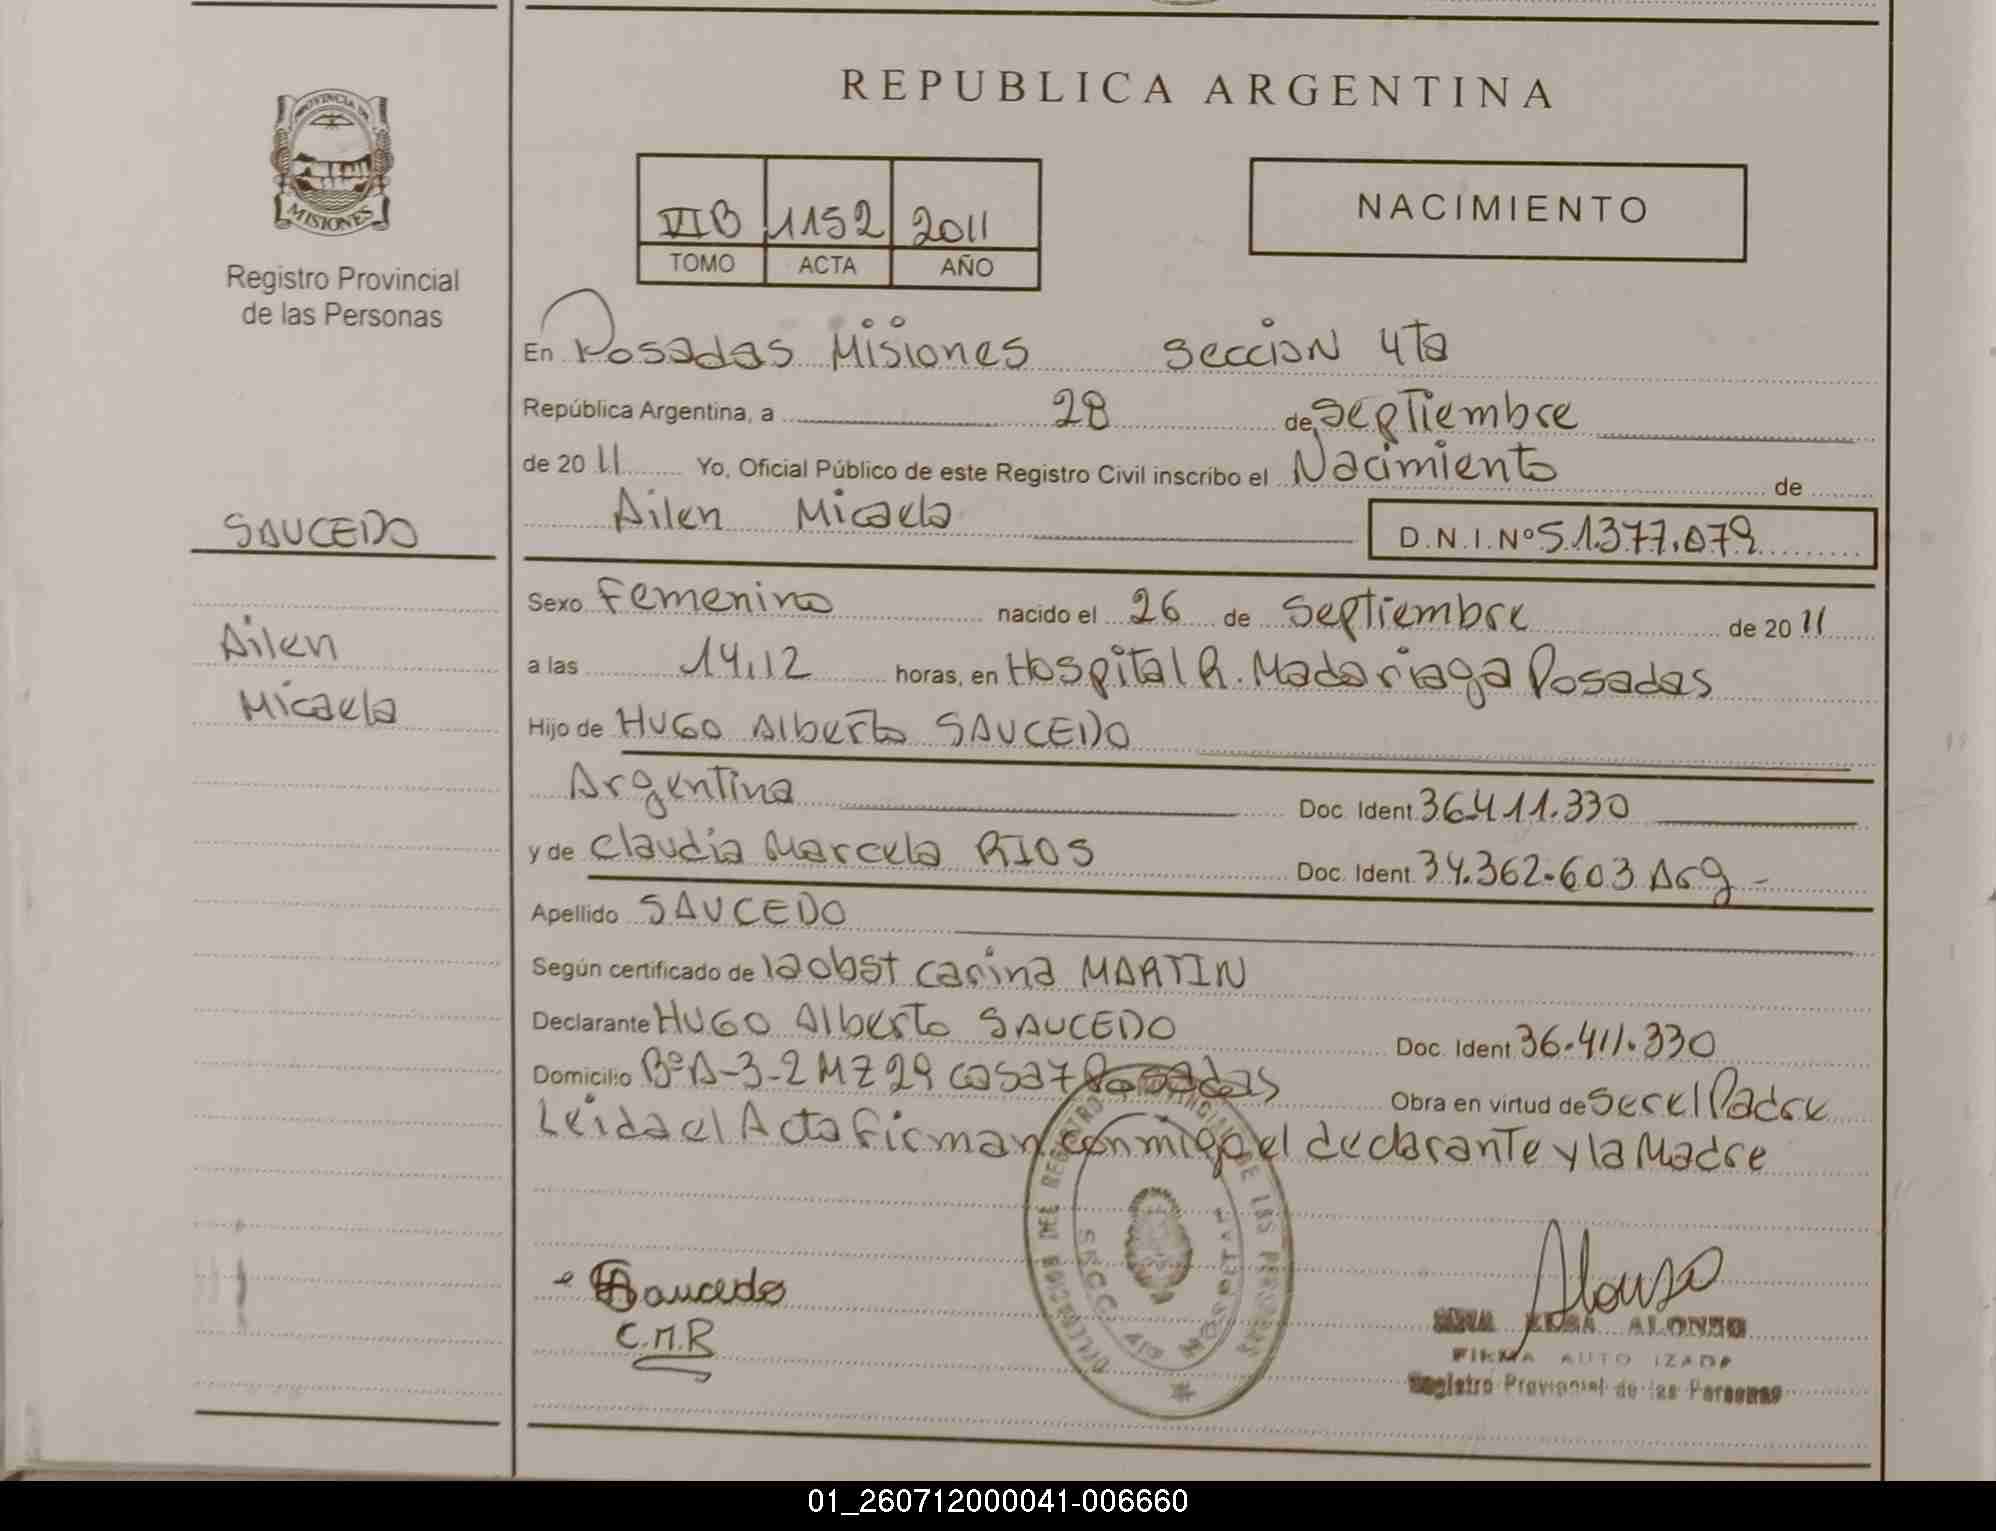 REPUBLICA ARGENTINA
PROVINCIA DE
MISIONES
Registro Provincial
de las Personas
VIB 1152 2011
TOMO ACTA AÑO
NACIMIENTO
En Posadas Misiones seccion 4ta
República Argentina, a 28 de Septiembre
de 2011 Yo, Oficial Público de este Registro Civil inscribo el Nacimiento de
SAUCEDO
Ailen Micaela D.N.I.Nº 51.377.079
Sexo Femenino nacido el 26 de Septiembre de 2011
Ailen
Micaela
a las 14,12 horas, en Hospital R. Madariaga Posadas
Hijo de HUGO Alberto SAUCEDO
Argentina Doc. Ident. 36.411.330
y de Claudia Marcela RIOS Doc. Ident. 34.362.603 Arg -
Apellido SAUCEDO
Según certificado de la obst Carina MARTIN
Declarante HUGO Alberto SAUCEDO Doc. Ident 36.411.330
Domicilio Bº A-3-2 MZ 29 casa 7 Posadas Obra en virtud de ser el Padre
Leida el Acta firman conmigo el declarante y la Madre
DEL REGISTRO PROVINCIAL DE LAS PERSONAS
SECC. 4ta
Saucedo
C.M.R
Alonso
ALONSO
FIRMA AUTO IZADA
Registro Provincial de las Personas
01_260712000041-006660